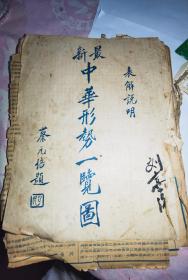 最新
中華形勢一覽圖
表解説明
蔡元培題